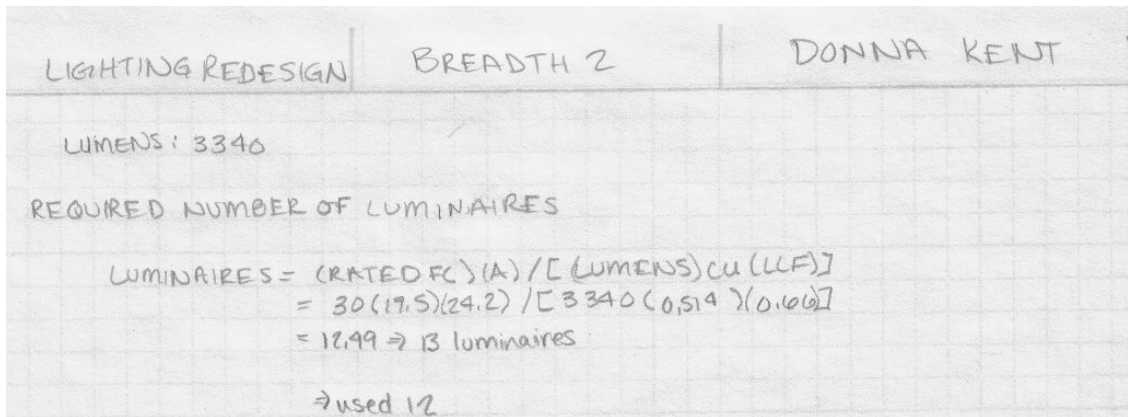 LIGHTING REDESIGN BREADTH 2 DONNA KENT
LUMENS: 3340
REQUIRED NUMBER OF LUMINAIRES
LUMINAIRES = (RATED FC)(A)/[(LUMENS)CU(LLF)]
= 30(19.5)(24.2)/[3340(0,514)(0.66)]
= 12.49 ⇒ 13 luminaires
⇒ used 12